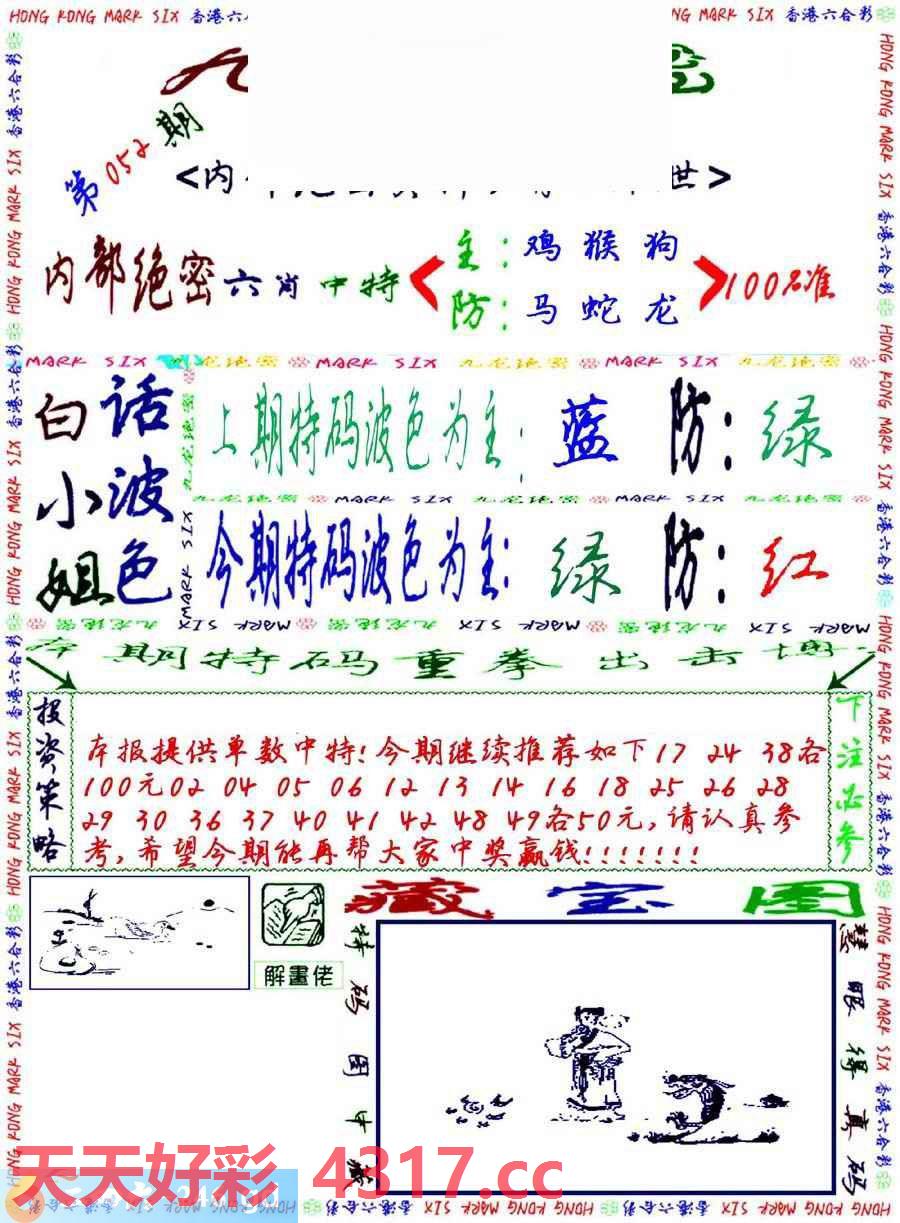 HONG KONG MARK SIX 香港六合彩
第052期
<内
世>
内部绝密六肖中特
主:鸡猴狗
防:马蛇龙
100%准
MARK SIX 九龙绝密 MARK SIX 九龙绝密 MARK SIX 九龙绝密
白话
小波
姐色
上期特码波色为主:蓝 防:绿
九龙绝密 MARK SIX 九龙绝密 MARK SIX 九龙绝密
今期特码波色为主:绿 防:红
期特码重拳出击
投资策略
本报提供单数中特!今期继续推荐如下17 24 38各
100元02 04 05 06 12 13 14 16 18 25 26 28
29 30 36 37 40 41 42 48 49各50元,请认真参
考,希望今期能再帮大家中奖赢钱!!!!!!!
下注必参
解畫佬
藏宝图
特码图中藏
慧眼得真码
天天好彩 4317.cc